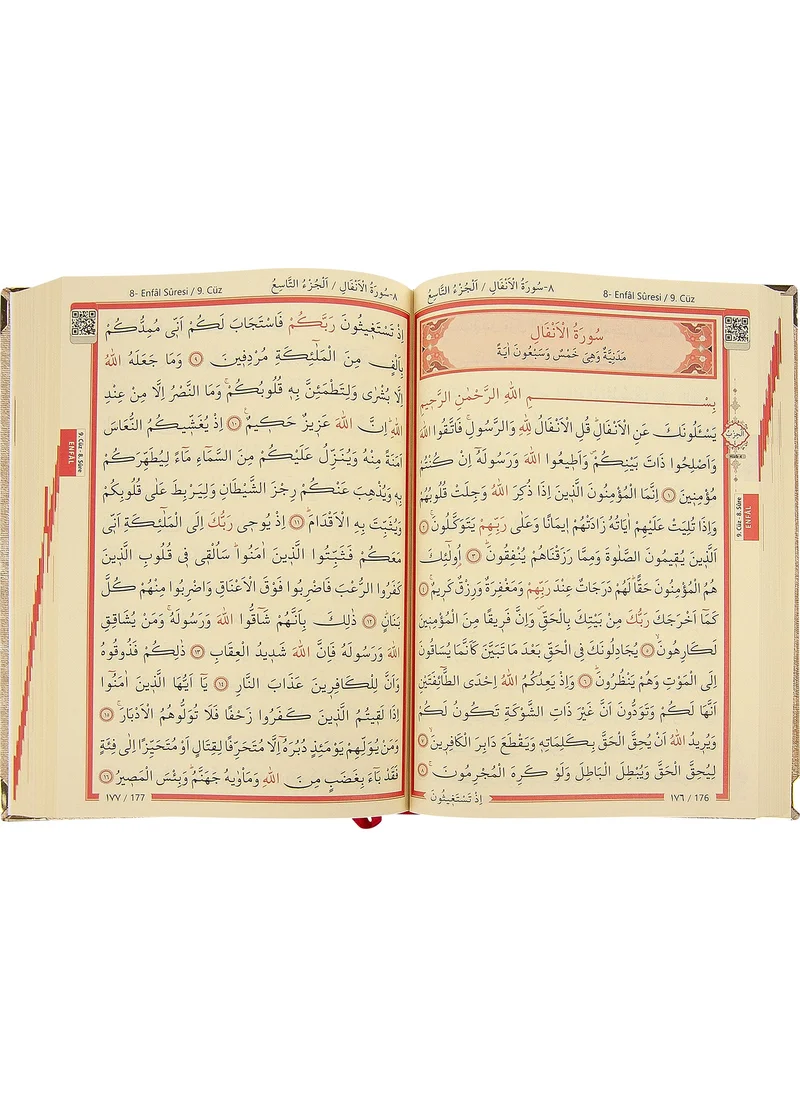 ٨-سُورَةُ الْاَنْفَالِ / اَلْجُزْءُ التَّاسِعُ
8- Enfâl Sûresi / 9. Cüz
سُورَةُ الْاَنْفَالِ
مَدَنِيَّةٌ وَهِىَ خَمْسٌ وَسَبْعُونَ اٰيَةً
بِسْــــــــــمِ اللهِ الرَّحْمٰنِ الرَّحٖيمِ
يَسْـَٔلُونَكَ عَنِ الْاَنْفَالِۜ قُلِ الْاَنْفَالُ لِلّٰهِ وَالرَّسُولِۚ فَاتَّقُوا اللهَ
وَاَصْلِحُوا ذَاتَ بَيْنِكُمْۖ وَاَطٖيعُوا اللهَ وَرَسُولَهُٓ اِنْ كُنْتُمْ
مُؤْمِنٖينَ ﴿١﴾ اِنَّمَا الْمُؤْمِنُونَ الَّذٖينَ اِذَا ذُكِرَ اللهُ وَجِلَتْ قُلُوبُهُمْ
وَاِذَا تُلِيَتْ عَلَيْهِمْ اٰيَاتُهُ زَادَتْهُمْ اٖيمَانًا وَعَلٰى رَبِّهِمْ يَتَوَكَّلُونَۚ ﴿٢﴾
اَلَّذٖينَ يُقٖيمُونَ الصَّلٰوةَ وَمِمَّا رَزَقْنَاهُمْ يُنْفِقُونَۜ ﴿٣﴾ اُو۬لٰٓئِكَ
هُمُ الْمُؤْمِنُونَ حَقًّاۜ لَهُمْ دَرَجَاتٌ عِنْدَ رَبِّهِمْ وَمَغْفِرَةٌ وَرِزْقٌ كَرٖيمٌۚ ﴿٤﴾
كَمَٓا اَخْرَجَكَ رَبُّكَ مِنْ بَيْتِكَ بِالْحَقِّۖ وَاِنَّ فَرٖيقًا مِنَ الْمُؤْمِنٖينَ
لَكَارِهُونَۙ ﴿٥﴾ يُجَادِلُونَكَ فِى الْحَقِّ بَعْدَ مَا تَبَيَّنَ كَاَنَّمَا يُسَاقُونَ
اِلَى الْمَوْتِ وَهُمْ يَنْظُرُونَۜ ﴿٦﴾ وَاِذْ يَعِدُكُمُ اللهُ اِحْدَى الطَّٓائِفَتَيْنِ
اَنَّهَا لَكُمْ وَتَوَدُّونَ اَنَّ غَيْرَ ذَاتِ الشَّوْكَةِ تَكُونُ لَكُمْ
وَيُرٖيدُ اللهُ اَنْ يُحِقَّ الْحَقَّ بِكَلِمَاتِهٖ وَيَقْطَعَ دَابِرَ الْكَافِرٖينَۙ ﴿٧﴾
لِيُحِقَّ الْحَقَّ وَيُبْطِلَ الْبَاطِلَ وَلَوْ كَرِهَ الْمُجْرِمُونَۚ ﴿٨﴾
اِذْ تَسْتَغٖيثُونَ
١٧٦ / 176
اَلْحِزْبُ
9. Cüz - 8. Sûre
ENFÂL
٨-سُورَةُ الْاَنْفَالِ / اَلْجُزْءُ التَّاسِعُ
8- Enfâl Sûresi / 9. Cüz
اِذْ تَسْتَغٖيثُونَ رَبَّكُمْ فَاسْتَجَابَ لَكُمْ اَنّٖى مُمِدُّكُمْ
بِاَلْفٍ مِنَ الْمَلٰٓئِكَةِ مُرْدِفٖينَ ﴿٩﴾ وَمَا جَعَلَهُ اللهُ
اِلَّا بُشْرٰى وَلِتَطْمَئِنَّ بِهٖ قُلُوبُكُمْۚ وَمَا النَّصْرُ اِلَّا مِنْ عِنْدِ
اللهِۜ اِنَّ اللهَ عَزٖيزٌ حَكٖيمٌ۟ ﴿١٠﴾ اِذْ يُغَشّٖيكُمُ النُّعَاسَ
اَمَنَةً مِنْهُ وَيُنَزِّلُ عَلَيْكُمْ مِنَ السَّمَٓاءِ مَٓاءً لِيُطَهِّرَكُمْ
بِهٖ وَيُذْهِبَ عَنْكُمْ رِجْزَ الشَّيْطَانِ وَلِيَرْبِطَ عَلٰى قُلُوبِكُمْ
وَيُثَبِّتَ بِهِ الْاَقْدَامَۜ ﴿١١﴾ اِذْ يُوحٖى رَبُّكَ اِلَى الْمَلٰٓئِكَةِ اَنّٖى
مَعَكُمْ فَثَبِّتُوا الَّذٖينَ اٰمَنُواۜ سَاُلْقٖى فٖى قُلُوبِ الَّذٖينَ
كَفَرُوا الرُّعْبَ فَاضْرِبُوا فَوْقَ الْاَعْنَاقِ وَاضْرِبُوا مِنْهُمْ كُلَّ
بَنَانٍۜ ﴿١٢﴾ ذٰلِكَ بِاَنَّهُمْ شَٓاقُّوا اللهَ وَرَسُولَهُۚ وَمَنْ يُشَاقِقِ
اللهَ وَرَسُولَهُ فَاِنَّ اللهَ شَدٖيدُ الْعِقَابِ ﴿١٣﴾ ذٰلِكُمْ فَذُوقُوهُ
وَاَنَّ لِلْكَافِرٖينَ عَذَابَ النَّارِ ﴿١٤﴾ يَٓا اَيُّهَا الَّذٖينَ اٰمَنُٓوا
اِذَا لَقٖيتُمُ الَّذٖينَ كَفَرُوا زَحْفًا فَلَا تُوَلُّوهُمُ الْاَدْبَارَۚ ﴿١٥﴾
وَمَنْ يُوَلِّهِمْ يَوْمَئِذٍ دُبُرَهُٓ اِلَّا مُتَحَرِّفًا لِقِتَالٍ اَوْ مُتَحَيِّزًا اِلٰى فِئَةٍ
فَقَدْ بَٓاءَ بِغَضَبٍ مِنَ اللهِ وَمَأْوٰيهُ جَهَنَّمُۜ وَبِئْسَ الْمَصٖيرُ ﴿١٦﴾
١٧٧ / 177
9. Cüz - 8. Sûre
ENFÂL